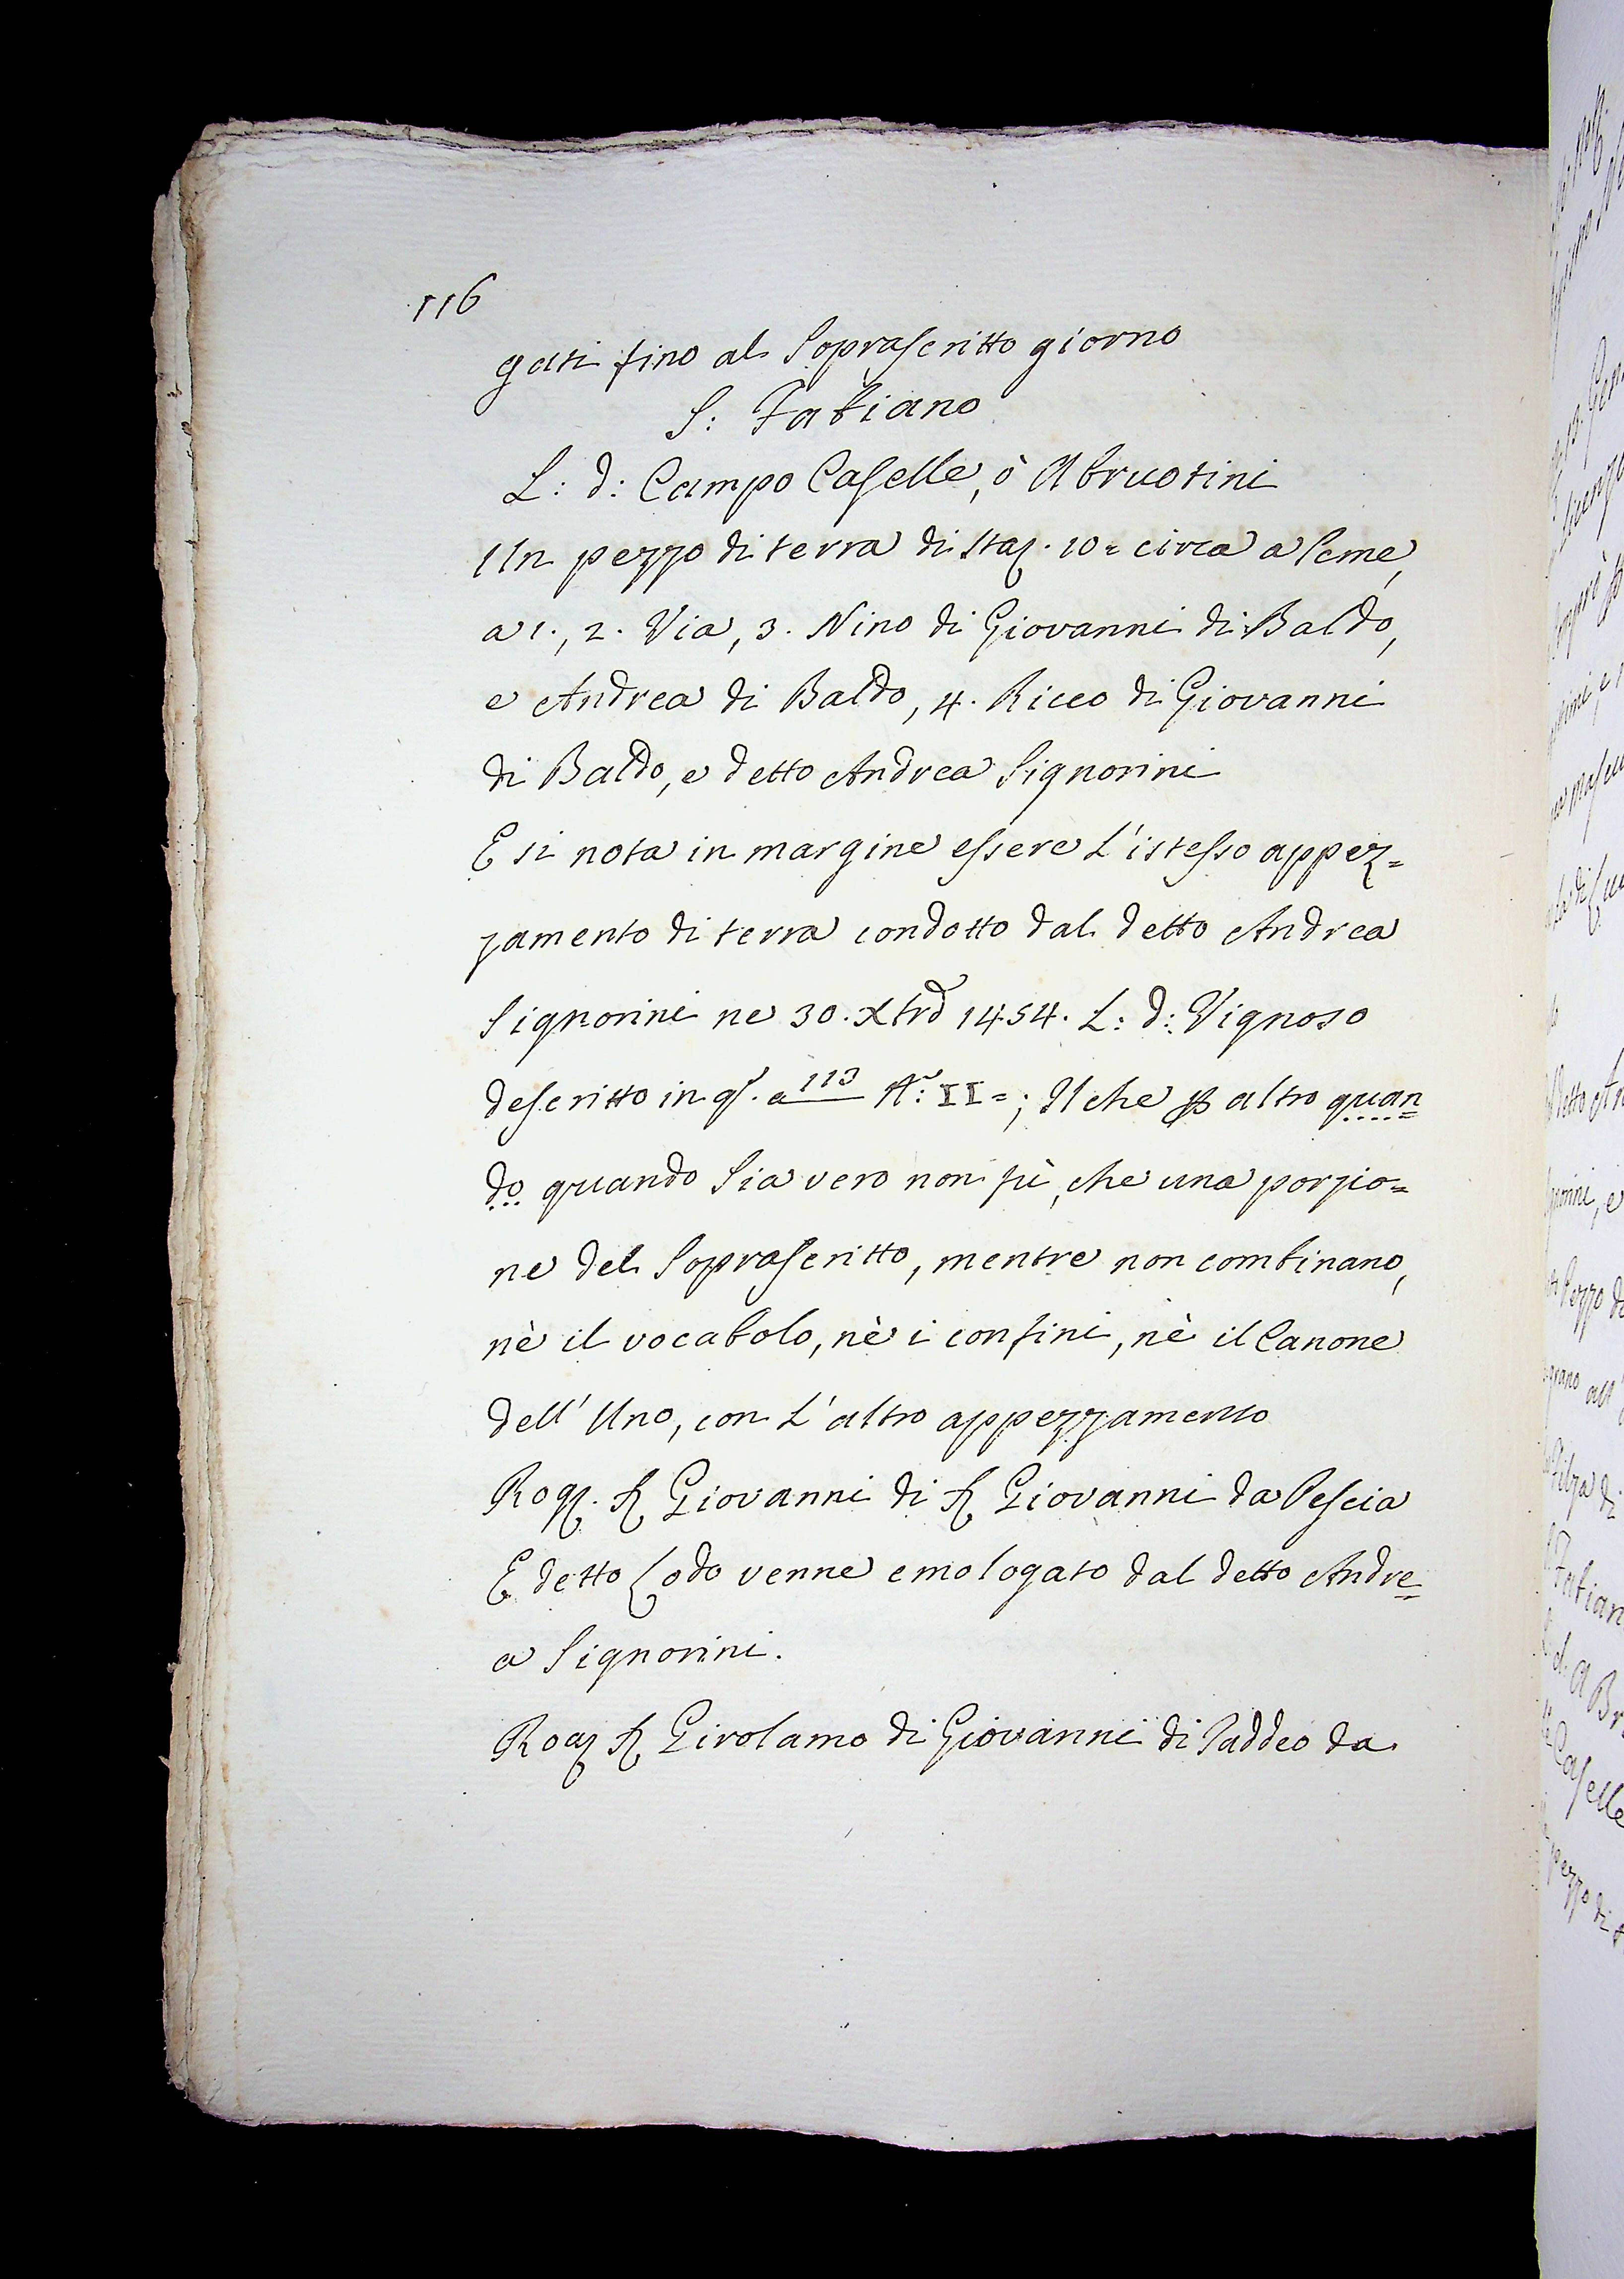 116
gati fino al Soprascritto giorno
S: Fabiano
L: d: Campo Caselle, ò Abruotini
Un pezzo di terra di Staj. 10= circa a Seme,
a 1., 2. Via, 3. Nino di Giovanni di Baldo,
e Andrea di Baldo, 4. Ricco di Giovanni
di Baldo, e detto Andrea Signorini
E si nota in margine essere l'istesso appez=
zamento di terra condotto dal detto Andrea
Signorini ne 30. Xbrẽ 1454. L: d: Vignoso
descritto in qõ. a 113 N: II=; Il che p altro quan
do quando Sia vero non fù, che una porzio=
ne del Soprascritto, mentre non combinano,
nè il vocabolo, nè i confini, nè il Canone
dell' Uno, con l'altro appezzamento
Rog. Sr Giovanni di Sr Giovanni da Pescia
E detto Lodo venne emologato dal detto Andre=
a Signorini.
Rog Sr Girolamo di Giovanni di Taddeo da